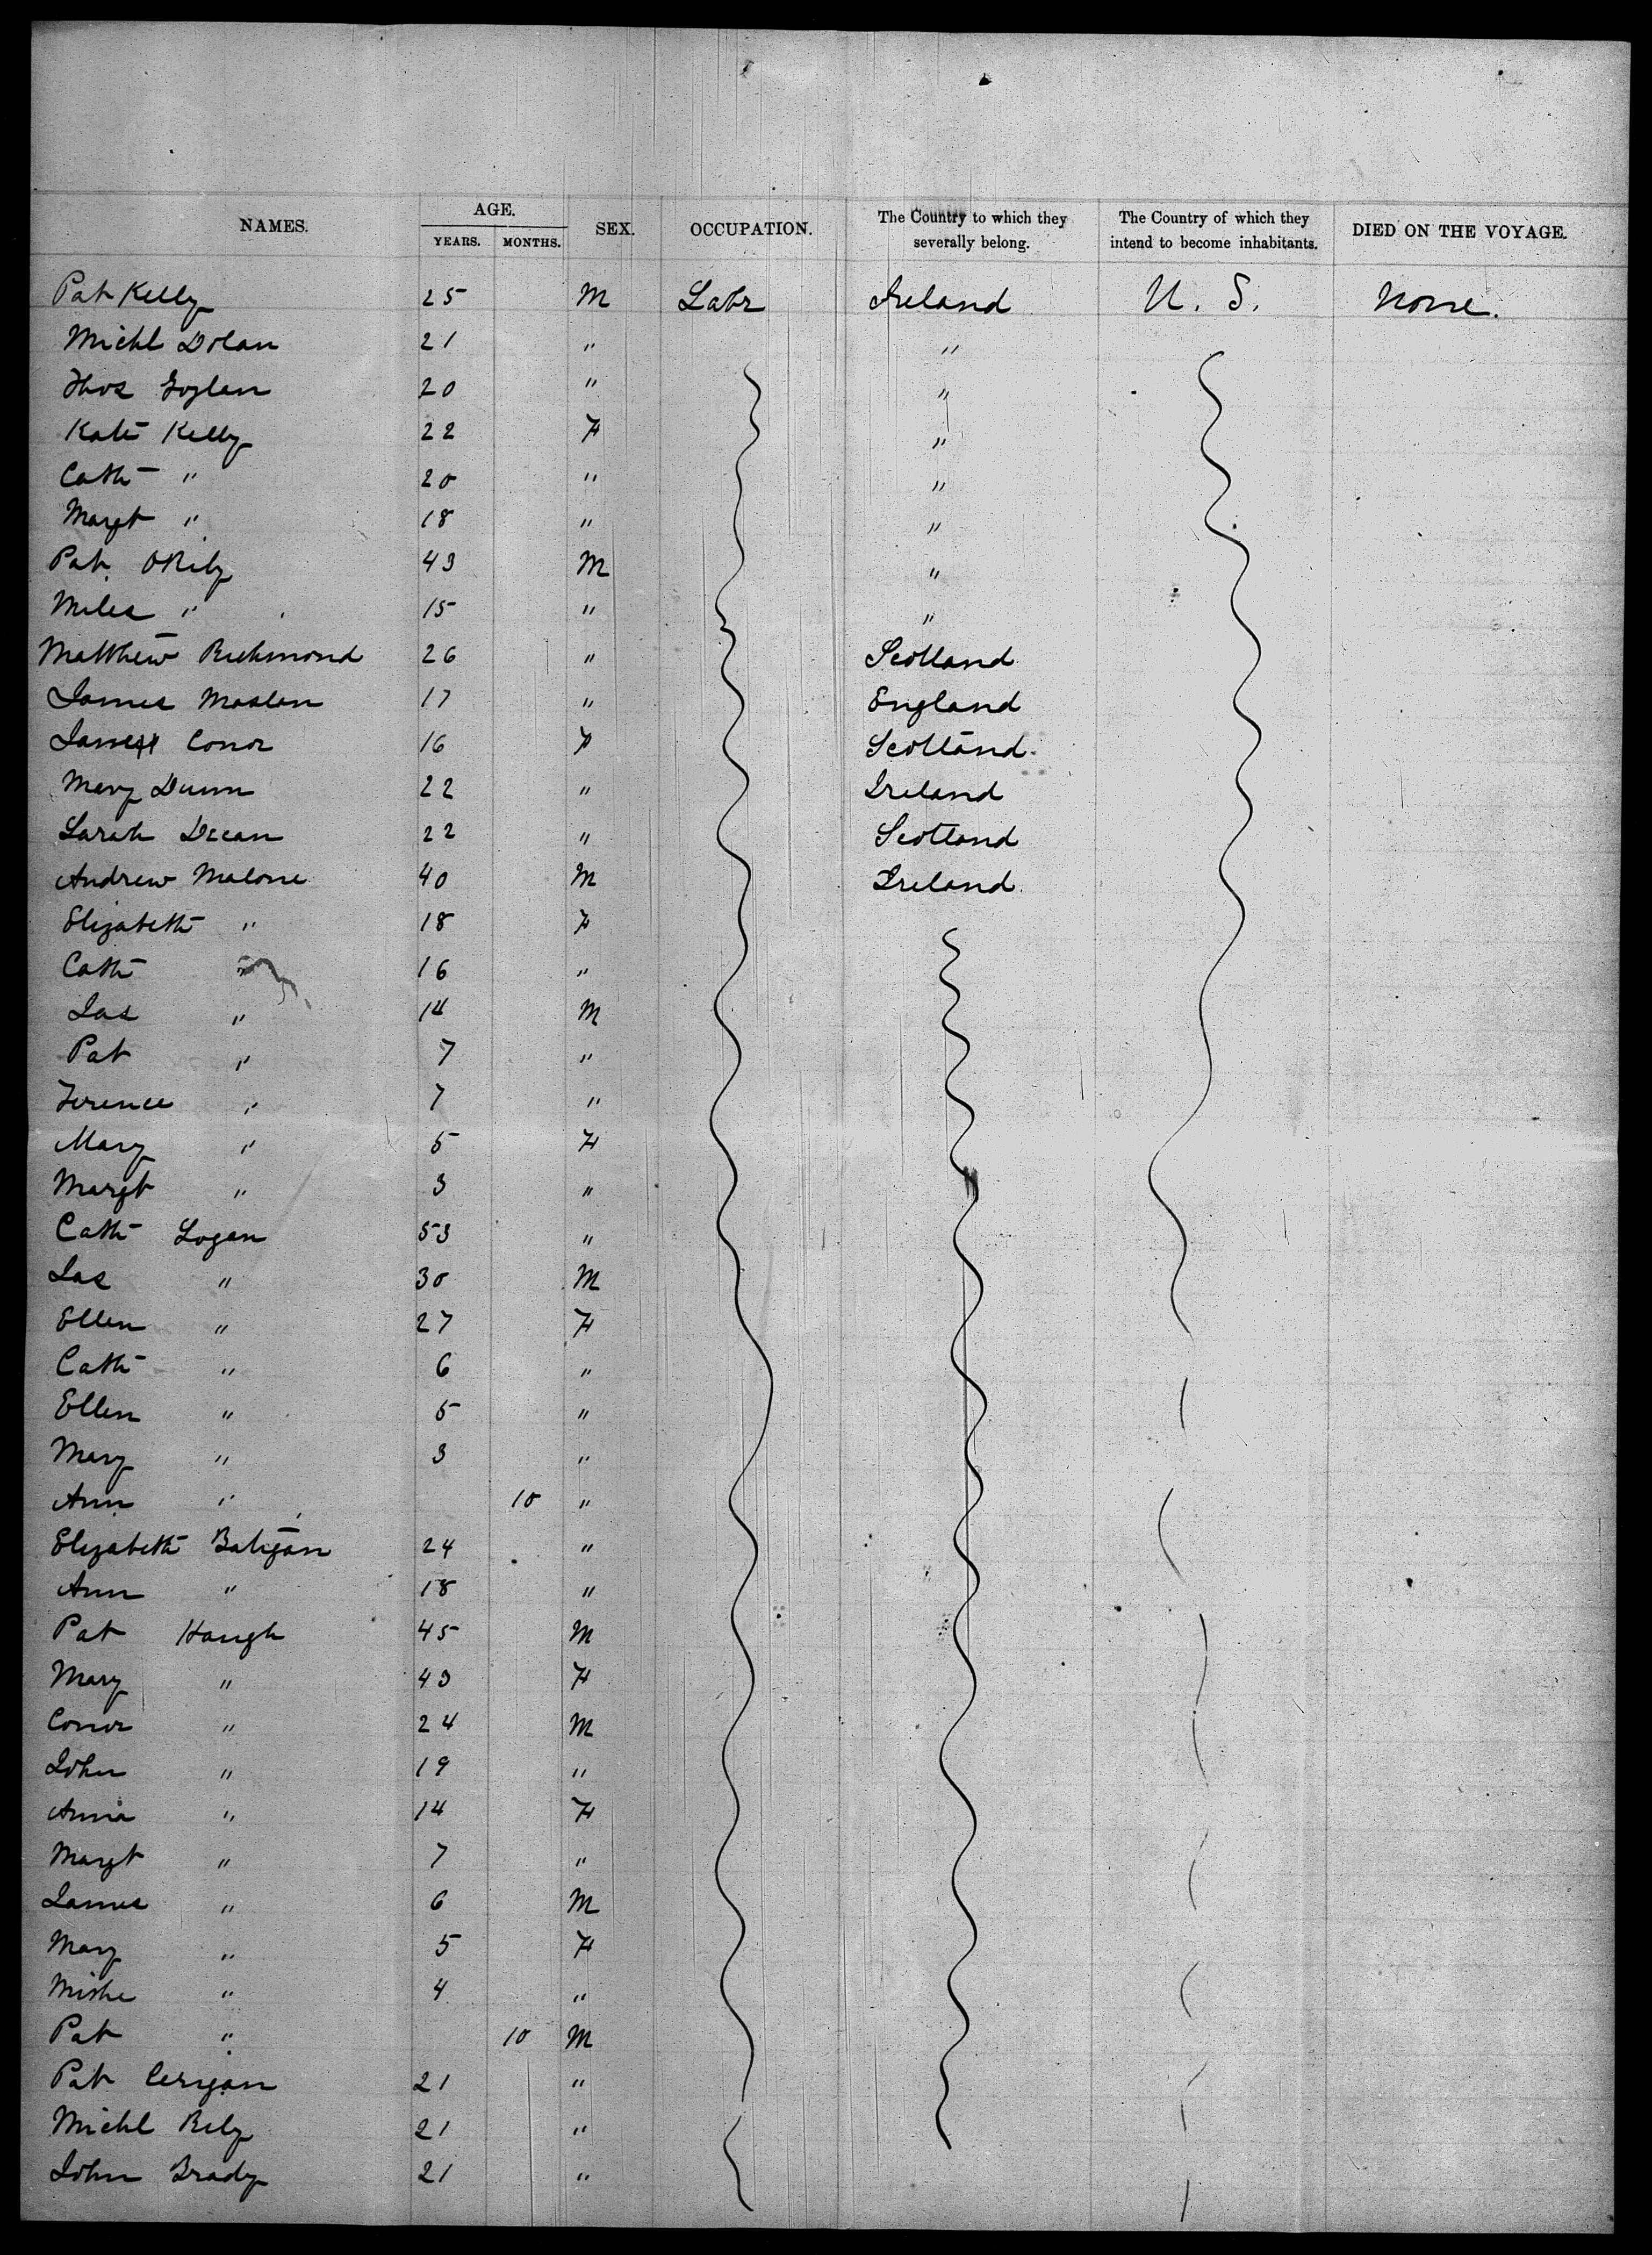 NAMES. AGE. YEARS. MONTHS. SEX. OCCUPATION. The Country to which they severally belong. The Country of which they intend to become inhabitants. DIED ON THE VOYAGE.
Pat Kelly 25 M Labr Ireland U. S. None.
Michl Dolan 21 " "
Thos 20 " "
Kate Kelly 22 F "
Cath " 20 " "
Margt " 18 " "
Pat ORily 43 M "
Miles " 15 " "
Matthew Richmond 26 " Scotland
James Maslan 17 " England
Conor 16 F Scotland
Mary Dunn 22 " Ireland
Sarah 22 " Scotland
Andrew Malone 40 M Ireland
Elizabeth " 18 F
Cath " 16 "
Jas " 14 M
Pat " 7 "
Terence " 7 "
Mary " 5 F
Margt " 3 "
Cath Logan 53 "
Jas " 30 M
Ellen " 27 F
Cath " 6 "
Ellen " 5 "
Mary " 3 "
Ann " 10 "
Elizabeth 24 "
Ann " 18 "
Pat Haugh 45 M
Mary " 43 F
Conor " 24 M
John " 19 "
Anna " 14 F
Margt " 7 "
James " 6 M
Mary " 5 F
" 4 "
Pat " 10 M
Pat 21 "
Michl Rily 21 "
John Brady 21 "